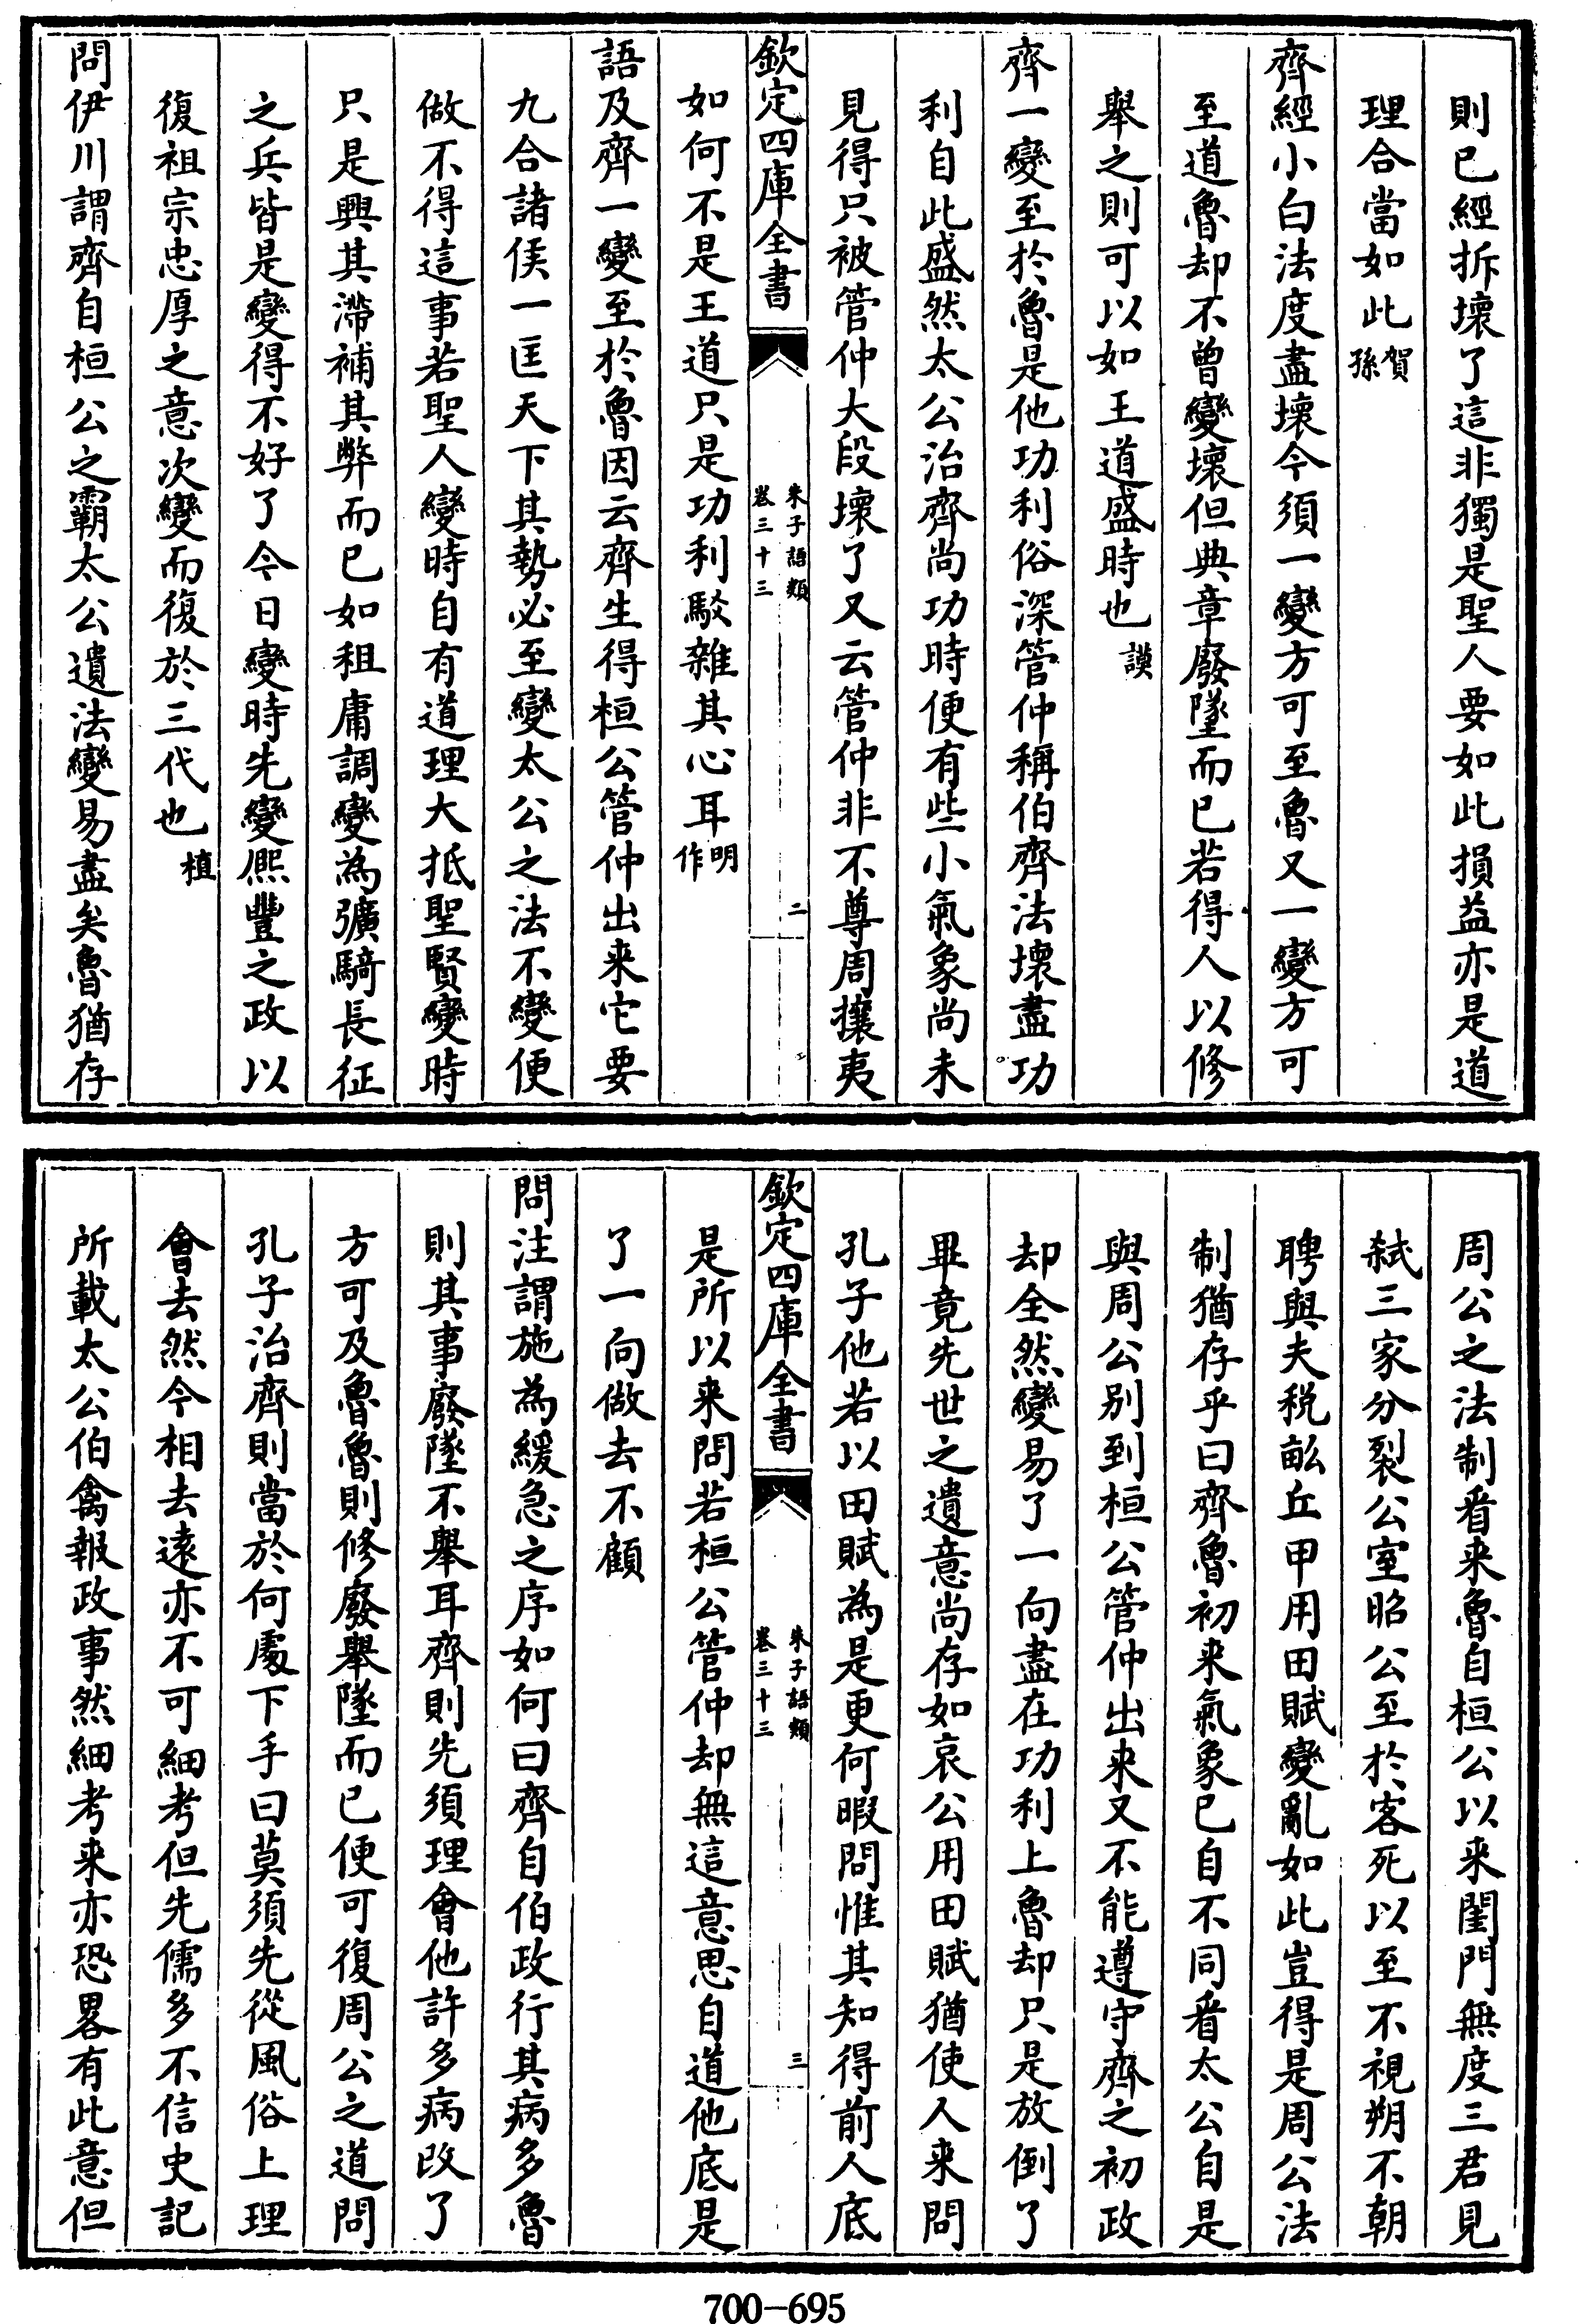 則已經拆壞了這非獨是聖人要如此損益亦是道
理合當如此賀孫
齊經小白法度盡壞今須一變方可至魯又一變方可
至道魯却不曾變壞但典章廢墜而已若得人以修
舉之則可以如王道盛時也謨
齊一變至於魯是他功利俗深管仲稱伯齊法壞盡功
利自此盛然太公治齊尚功時便有些小氣象尚未
見得只被管仲大段壞了又云管仲非不尊周攘夷
欽定四庫全書
朱子語類
卷三十三
二
如何不是王道只是功利駁雜其心耳明作
語及齊一變至於魯因云齊生得桓公管仲出来它要
九合諸侯一匡天下其勢必至變太公之法不變便
做不得這事若聖人變時自有道理大抵聖賢變時
只是興其滯補其弊而已如租庸調變為彍騎長征
之兵皆是變得不好了今日變時先變熈豐之政以
復祖宗忠厚之意次變而復於三代也植
問伊川謂齊自桓公之霸太公遺法變易盡矣魯猶存
周公之法制看来魯自桓公以来閨門無度三君見
弑三家分裂公室昭公至於客死以至不視朔不朝
聘與夫税畝丘甲用田賦變亂如此豈得是周公法
制猶存乎曰齊魯初来氣象已自不同看太公自是
與周公別到桓公管仲出来又不能遵守齊之初政
却全然變易了一向盡在功利上魯却只是放倒了
畢竟先世之遺意尚存如哀公用田賦猶使人来問
孔子他若以田賦為是更何暇問惟其知得前人底
欽定四庫全書
朱子語類
卷三十三
三
是所以来問若桓公管仲却無這意思自道他底是
了一向做去不顧
問注謂施為緩急之序如何曰齊自伯政行其病多魯
則其事廢墜不舉耳齊則先須理會他許多病敗了
方可及魯魯則修廢舉墜而已便可復周公之道問
孔子治齊則當於何處下手曰莫須先從風俗上理
會去然今相去遠亦不可細考但先儒多不信史記
所載太公伯禽報政事然細考来亦恐畧有此意但
700-695